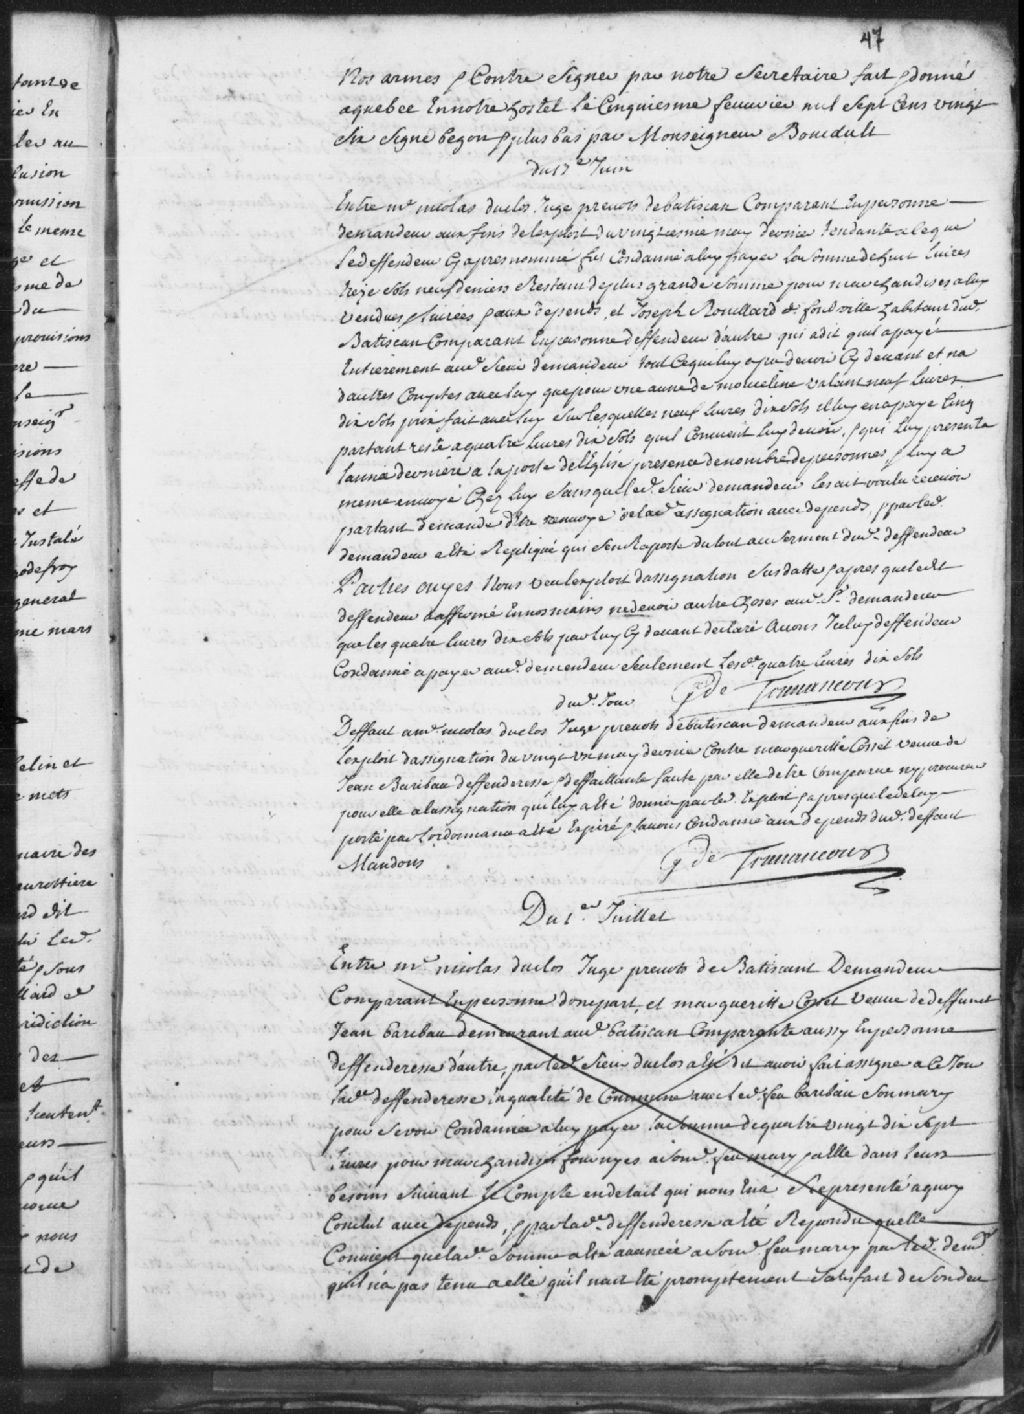 47
Nos armes & Contre Signer par notre Secretaire fait & donné
a quebec En notre hostel Le Cinquiesme feuvrier mil Sept Cens vingt
Six Signe begon & plus bas par Monseigneur
du 17e Juin
Entre me nicolas duclos Juge prevots de batiscan Comparent En personne
demandeur aux fins de lexploit du vingt uesme may dernier tendante a Ce que
Le deffendeur Cy apres nommé fus Condanné a luy payer La Somme de huit Livres
treze Sols neuf deniers Restant de plus grande Somme pour marchandises a luy
vendues & Livrées & aux depends, et Joseph Rouillard de fondville habitant dud.
Batiscan Comparant En personne deffendeur d'autre qui a dit quil a payé
Entierement aud Sieur demandeur tout Ce que luy a pu devoir Cy devant et na
dautres Comptes avec Luy que pour une aune de mouceline valant neuf Livres
dix Sols prix fait avec Luy Sur lesquelles neuf Livres dix Sols il luy en a payé Cinq
partant reste a quatre Livres dix Sols quil Convient luy devoir, & qui luy presenta
lanné derniere a la porte de lEglise presence de nombre de personnes & luy a
meme envoyé Chez luy Sans que led. Sieur demandeur Les ait voulu recevoir
partant demande dEtre renvoyé de lad assignation avec depends, & par led
demandeur a Eté Repliqué qui Sen Raporte du tout au Serment dud deffendeur
Parties ouyes Nous veu lexploit dassignation Susdatté & apres que ledit
deffendeur a affirmé En nos mains ne devoir autre Choses aud Sr demandeur
que les quatre livres dix Sols par luy Cy devant declaré Avons Iceluy deffendeur
Condanné a payer aud demendeur Seulement Lesd quatre Livres dix Sols
dud. Jour G de Tonnancour
Deffaut a me nicolas duclos Juge prevots de batiscan demandeur aux fins de
Lexploit dassignation du vingt un may dernier Contre margueritte Cosset veuve de
Jean Baribau deffenderesse & deffaillante faute par elle de tre Comparue ny procureur
pour elle a lassignation qui luy a Eté donné par led. Exploit & apres que le delay
porté par Lordonnance a Eté Expiré & lavons Condanné aux depends dud. deffaut
Mandons G de Tonnancour
Du 1er Juillet
Entre me nicolas duclos Juge prevots de Batiscant Demandeur
Comparant En personne dune part, et margueritte Cosset veuve de deffunct
Jean baribau demeurant aud batiscan Comparante aussy En personne
deffenderesse d'autre, par led Sieur duclos a Eté dit avoir fait assigné a Ce Jour
lad deffenderesse En qualité de Commune avec led. feu baribau Son mary
pour Se voir Condannée a luy payer La Somme de quatre vingt dix Sept
Livres pour marchandises fournyes a Sond. feu mary & a Elle dans leurs
besoins Suivant Le Compte en detail qui nous En a Representé a quoy
Conclut avec depends, & par lad. deffenderesse a Eté Repondu quelle
Convient que lad. Somme a Eté avancée a Sond. feu mary par led. demr
quil na pas tenu a elle quil nait Eté promptement Satisfait de Son deu